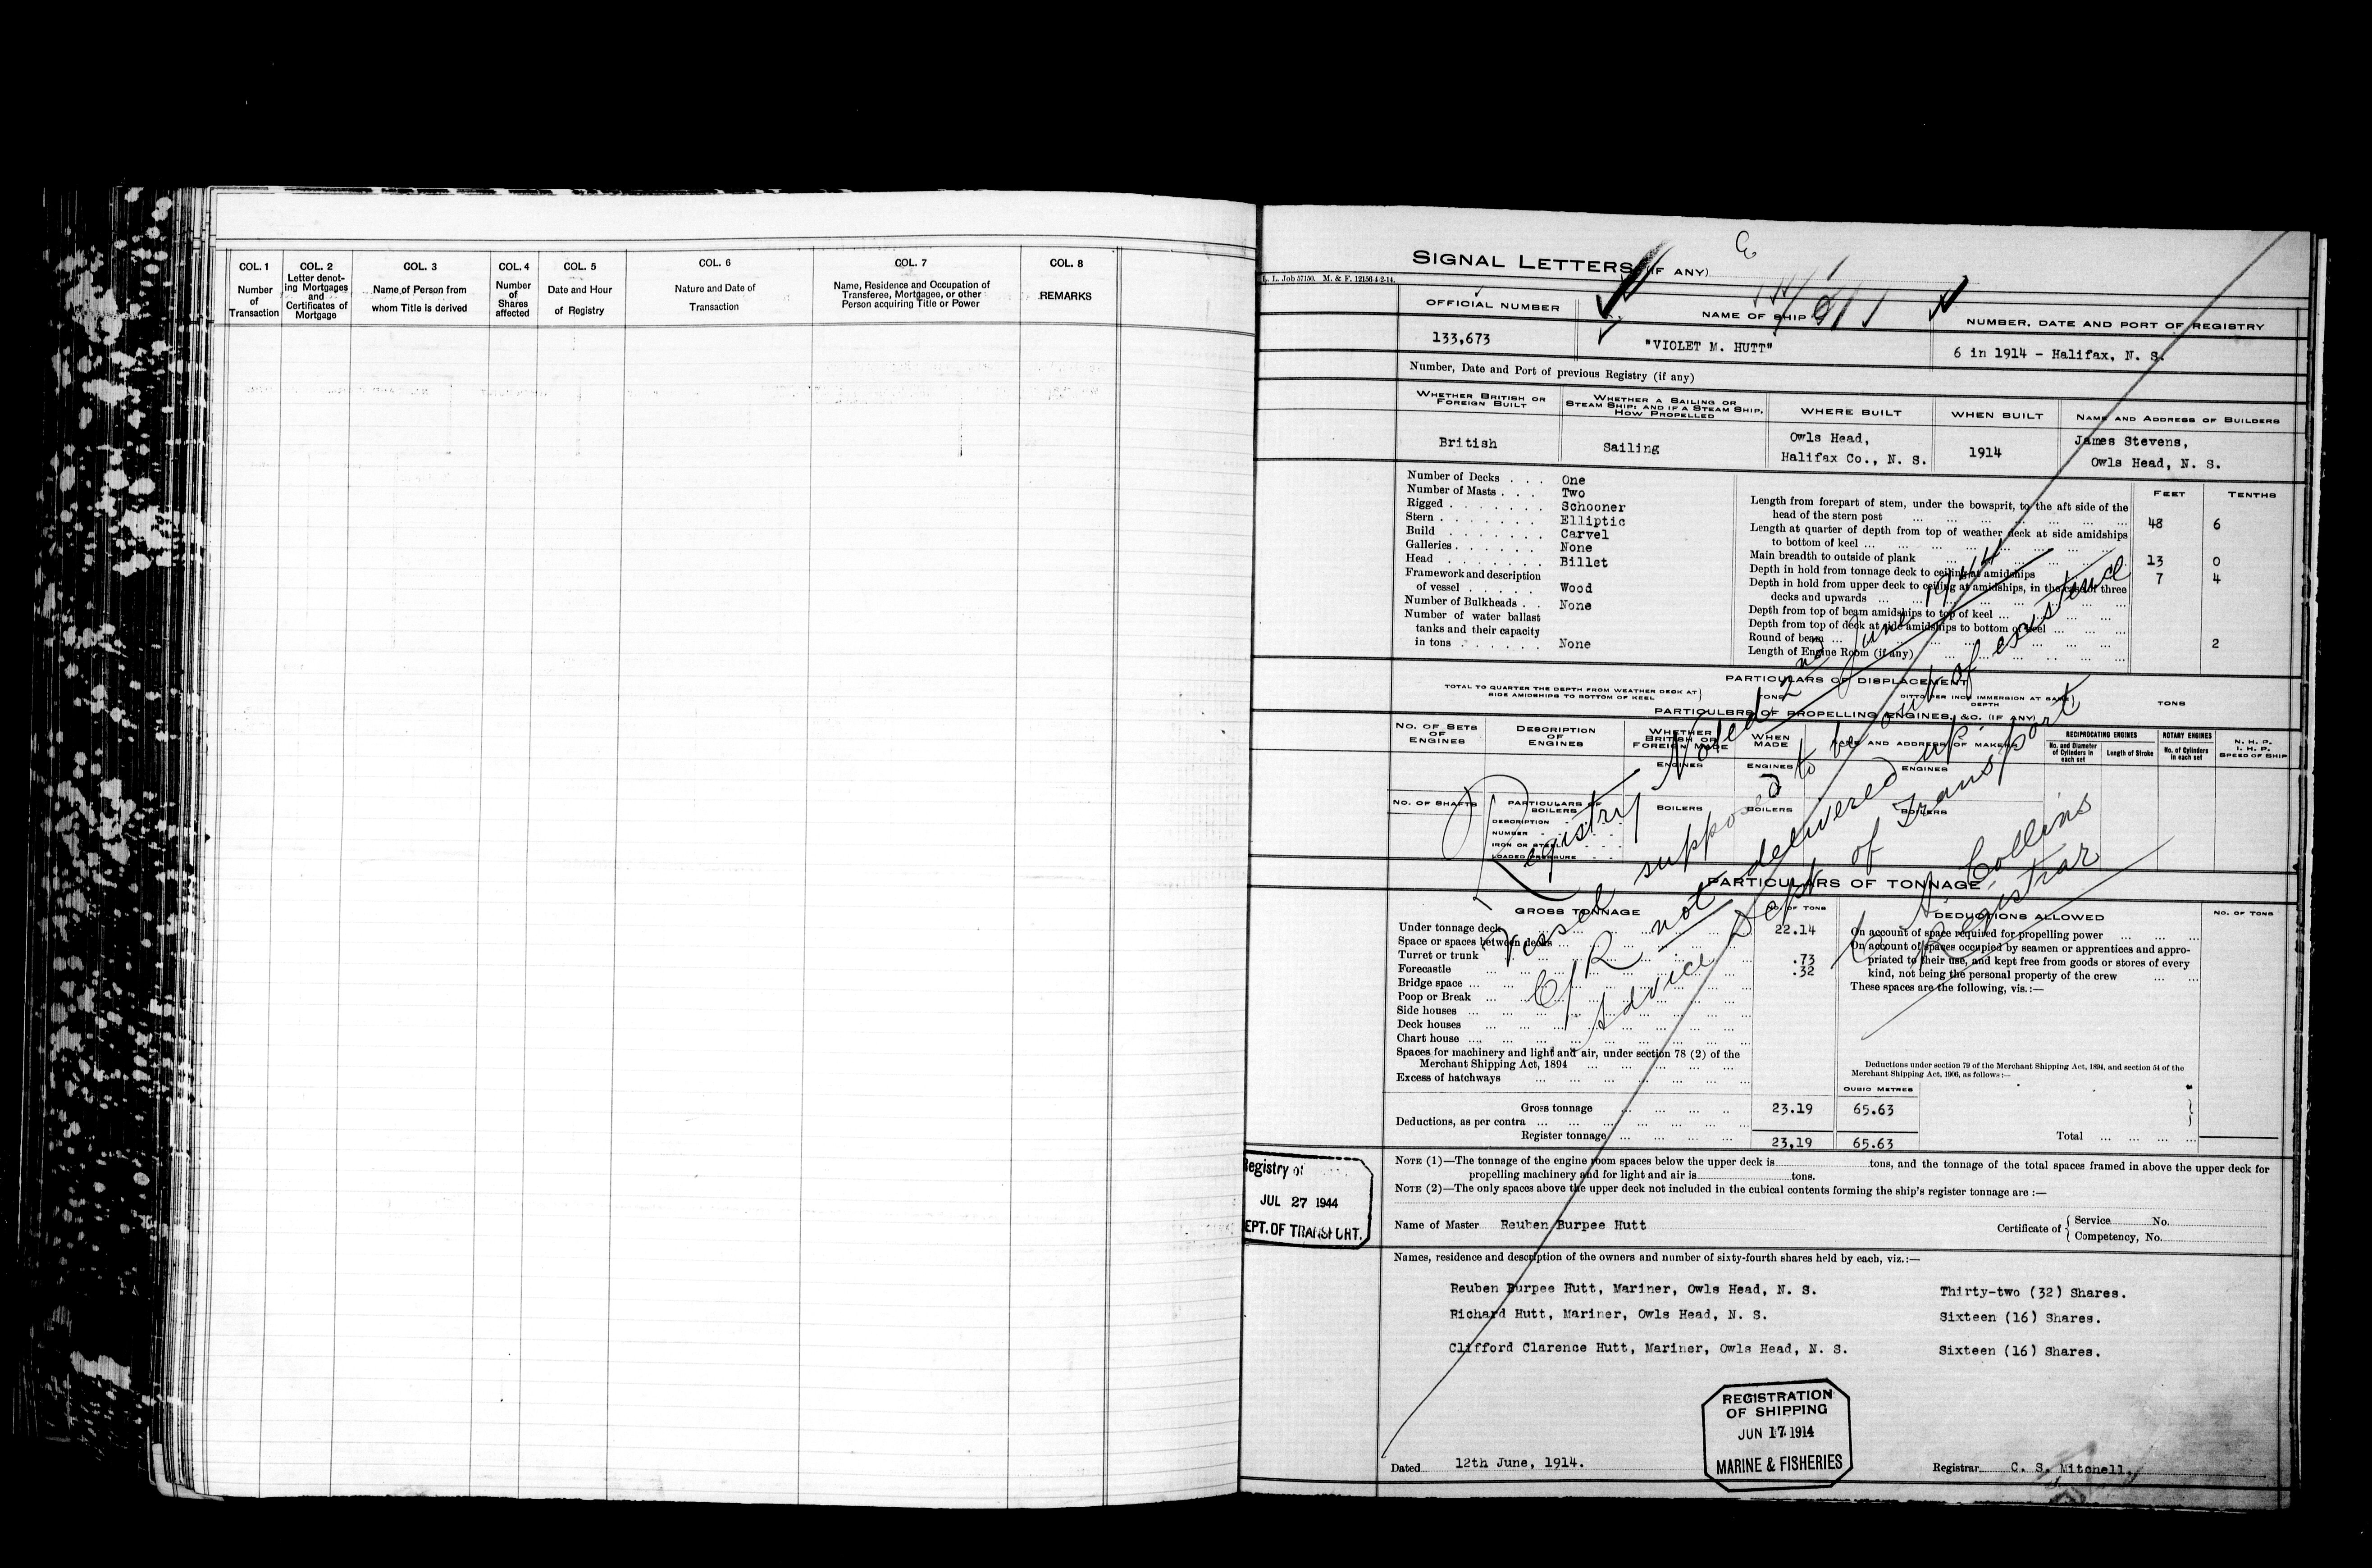 COL. 1
Number
of
Transaction
COL. 2
Letter denot-
ing Mortgages
and
Certificates of
Mortgage
COL. 3
Name of Person from
whom Title is derived
COL. 4
Number
of
Shares
affected
COL. 5
Date and Hour
of Registry
COL. 6
Nature and Date of
Transaction
COL. 7
Name, Residence and Occupation of
Transferee, Mortgagee, or other
Person acquiring Title or Power
COL. 8
REMARKS
SIGNAL LETTERS (IF ANY)
L. I. Job 57150. M. & F. 12156 4-2-14.
OFFICIAL NUMBER
NAME OF SHIP
NUMBER, DATE AND PORT OF REGISTRY
133,673
"VIOLET M. HUTT"
6 in 1914 - Halifax, N. S.
Number, Date and Port of previous Registry (if any)
WHETHER BRITISH OR
FOREIGN BUILT
WHETHER A SAILING OR
STEAM SHIP; AND IF A STEAM SHIP,
HOW PROPELLED
WHERE BUILT
WHEN BUILT
NAME AND ADDRESS OF BUILDERS
British
Sailing
Owls Head,
Halifax Co., N. S.
1914
James Stevens,
Owls Head, N. S.
Number of Decks . . . One
Number of Masts . . . Two
Rigged . . . . . . . Schooner
Stern . . . . . . . Elliptic
Build . . . . . . . Carvel
Galleries . . . . . . None
Head . . . . . . . Billet
Framework and description
of vessel . . . . . Wood
Number of Bulkheads . . None
Number of water ballast
tanks and their capacity
in tons . . . . . . None
FEET TENTHS
Length from forepart of stem, under the bowsprit, to the aft side of the
head of the stern post 48 6
Length at quarter of depth from top of weather deck at side amidships
to bottom of keel
Main breadth to outside of plank 13 0
Depth in hold from tonnage deck to ceiling at amidships 7 4
Depth in hold from upper deck to ceiling at amidships, in the case of three
decks and upwards
Depth from top of beam amidships to top of keel
Depth from top of deck at side amidships to bottom of keel
Round of beam 2
Length of Engine Room (if any)
PARTICULARS OF DISPLACEMENT
TOTAL TO QUARTER THE DEPTH FROM WEATHER DECK AT
SIDE AMIDSHIPS TO BOTTOM OF KEEL
TONS
DITTO PER INCH IMMERSION AT SAME
DEPTH
TONS
PARTICULBRS OF PROPELLING ENGINES, &C. (IF ANY)
NO. OF SETS
OF
ENGINES
DESCRIPTION
OF
ENGINES
WHETHER
BRITISH OR
FOREIGN MADE
WHEN
MADE
NAME AND ADDRESS OF MAKERS
RECIPROCATING ENGINES
No. and Diameter
of Cylinders in
each set
Length of Stroke
ROTARY ENGINES
No. of Cylinders
in each set
N. H. P.
I. H. P.
SPEED OF SHIP
ENGINES
ENGINES
ENGINES
NO. OF SHAFTS
PARTICULARS OF
BOILERS
DESCRIPTION
NUMBER
IRON OR STEEL
LOADED PRESSURE
BOILERS
BOILERS
BOILERS
Registry Noted 2nd June 1944
Vessel supposed to be out of existence
C/R not delivered up.
Advice Dept of Transport
A. Collins
Registrar
PARTICULARS OF TONNAGE
GROSS TONNAGE
NO. OF TONS
DEDUCTIONS ALLOWED
NO. OF TONS
Under tonnage deck 22.14
Space or spaces between decks
Turret or trunk .73
Forecastle .32
Bridge space
Poop or Break
Side houses
Deck houses
Chart house
Spaces for machinery and light and air, under section 78 (2) of the
Merchant Shipping Act, 1894
Excess of hatchways
Gross tonnage 23.19
Deductions, as per contra
Register tonnage 23.19
On account of space required for propelling power
On account of spaces occupied by seamen or apprentices and appro-
priated to their use, and kept free from goods or stores of every
kind, not being the personal property of the crew
These spaces are the following, vis.:—
Deductions under section 79 of the Merchant Shipping Act, 1894, and section 54 of the
Merchant Shipping Act, 1906, as follows:—
CUBIC METRES
65.63
65.63
Total
NOTE (1)—The tonnage of the engine room spaces below the upper deck is tons, and the tonnage of the total spaces framed in above the upper deck for
propelling machinery and for light and air is tons.
NOTE (2)—The only spaces above the upper deck not included in the cubical contents forming the ship's register tonnage are :—
Registry of
JUL 27 1944
EPT. OF TRANSPORT.
Name of Master Reuben Burpee Hutt
Certificate of { Service No.
Competency, No.
Names, residence and description of the owners and number of sixty-fourth shares held by each, viz.:—
Reuben Burpee Hutt, Mariner, Owls Head, N. S. Thirty-two (32) Shares.
Richard Hutt, Mariner, Owls Head, N. S. Sixteen (16) Shares.
Clifford Clarence Hutt, Mariner, Owls Head, N. S. Sixteen (16) Shares.
REGISTRATION
OF SHIPPING
JUN 17 1914
MARINE & FISHERIES
Dated 12th June, 1914.
Registrar C. S. Mitchell.